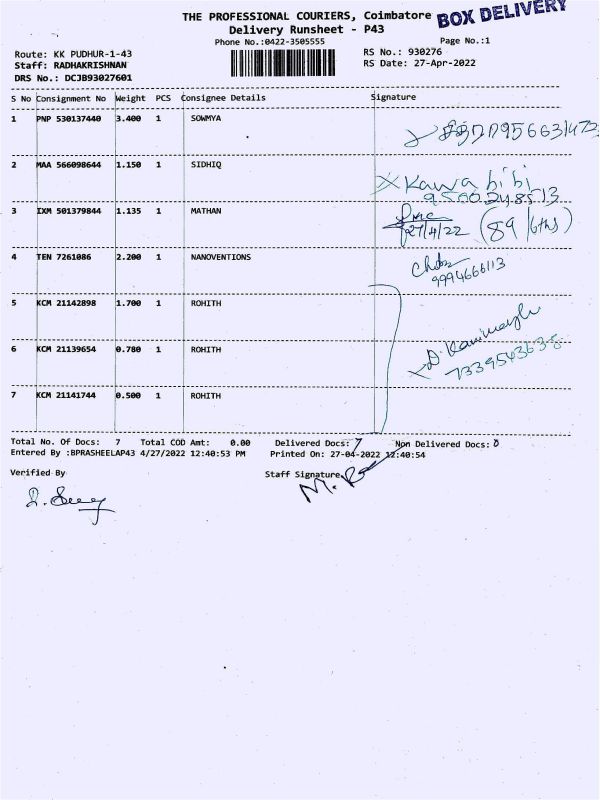 THE PROFESSIONAL COURIERS, Coimbatore
BOX DELIVERY
Delivery Runsheet - P43
Phone No.:0422-3505555
Page No.:1
Route: KK PUDHUR-1-43
RS No.: 930276
Staff: RADHAKRISHNAN
RS Date: 27-Apr-2022
DRS No.: DCJB93027601
S No Consignment No Weight PCS Consignee Details Signature
1 PNP 530137440 3.400 1 SOWMYA
2 MAA 566098644 1.150 1 SIDHIQ
Kawa bibi
9500248513
3 IXM 501379844 1.135 1 MATHAN
27/4/22
4 TEN 7261086 2.200 1 NANOVENTIONS
9994666113
5 KCM 21142898 1.700 1 ROHITH
6 KCM 21139654 0.780 1 ROHITH
7339543638
7 KCM 21141744 0.500 1 ROHITH
Total No. Of Docs: 7 Total COD Amt: 0.00 Delivered Docs: 7 Non Delivered Docs: 0
Entered By :BPRASHEELAP43 4/27/2022 12:40:53 PM Printed On: 27-04-2022 12:40:54
Verified By
Staff Signature